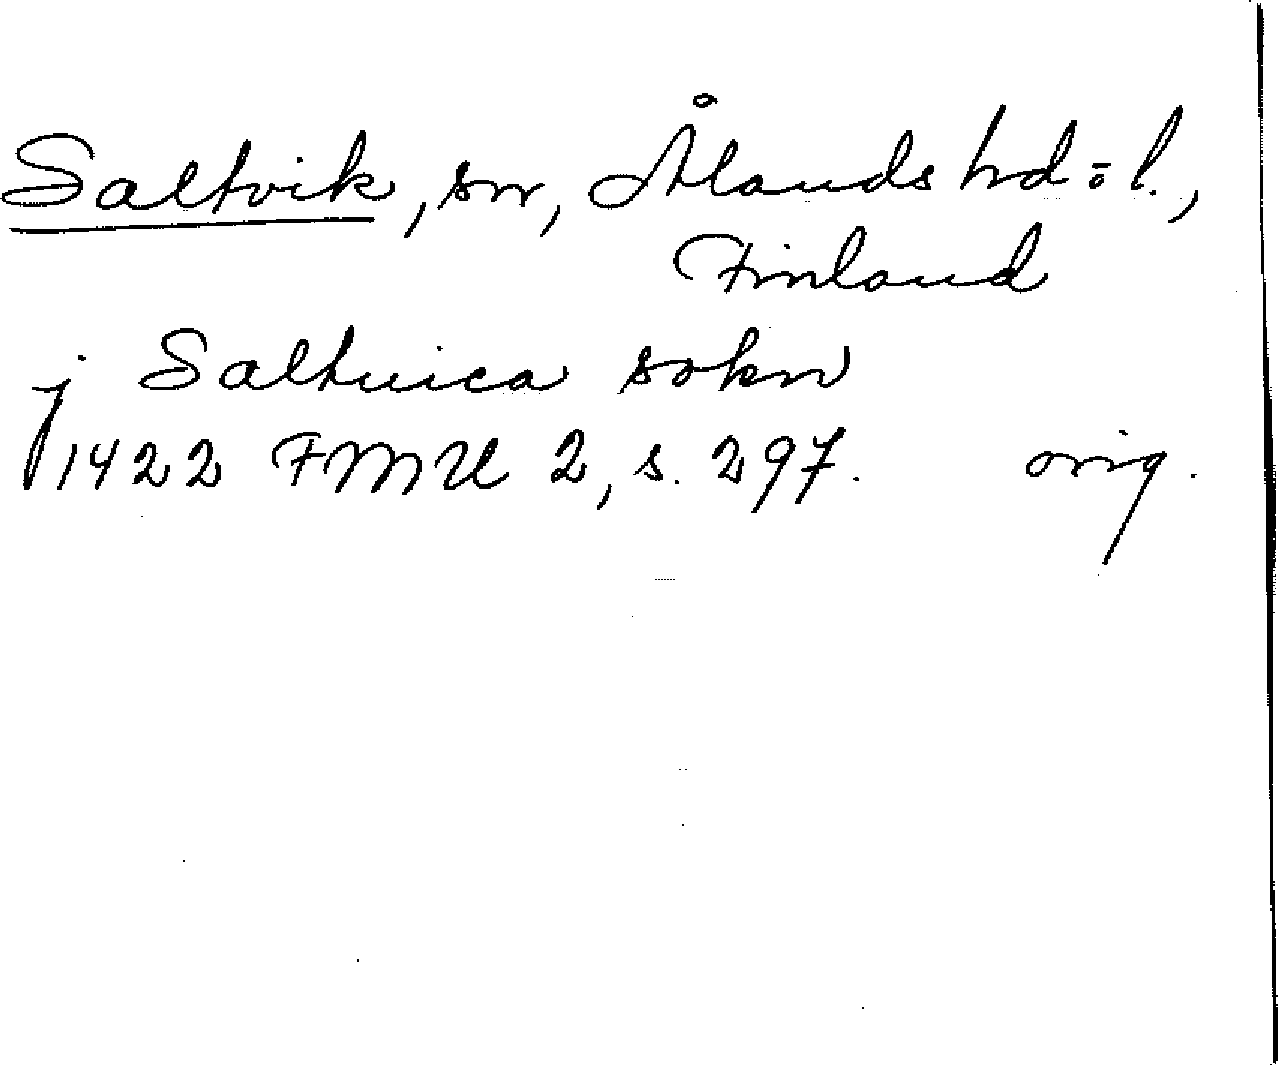 Saltvik, sn, Ålands hd o. l.,
Finland
j Saltuica sokn
1422 FMU 2, s. 297. orig.